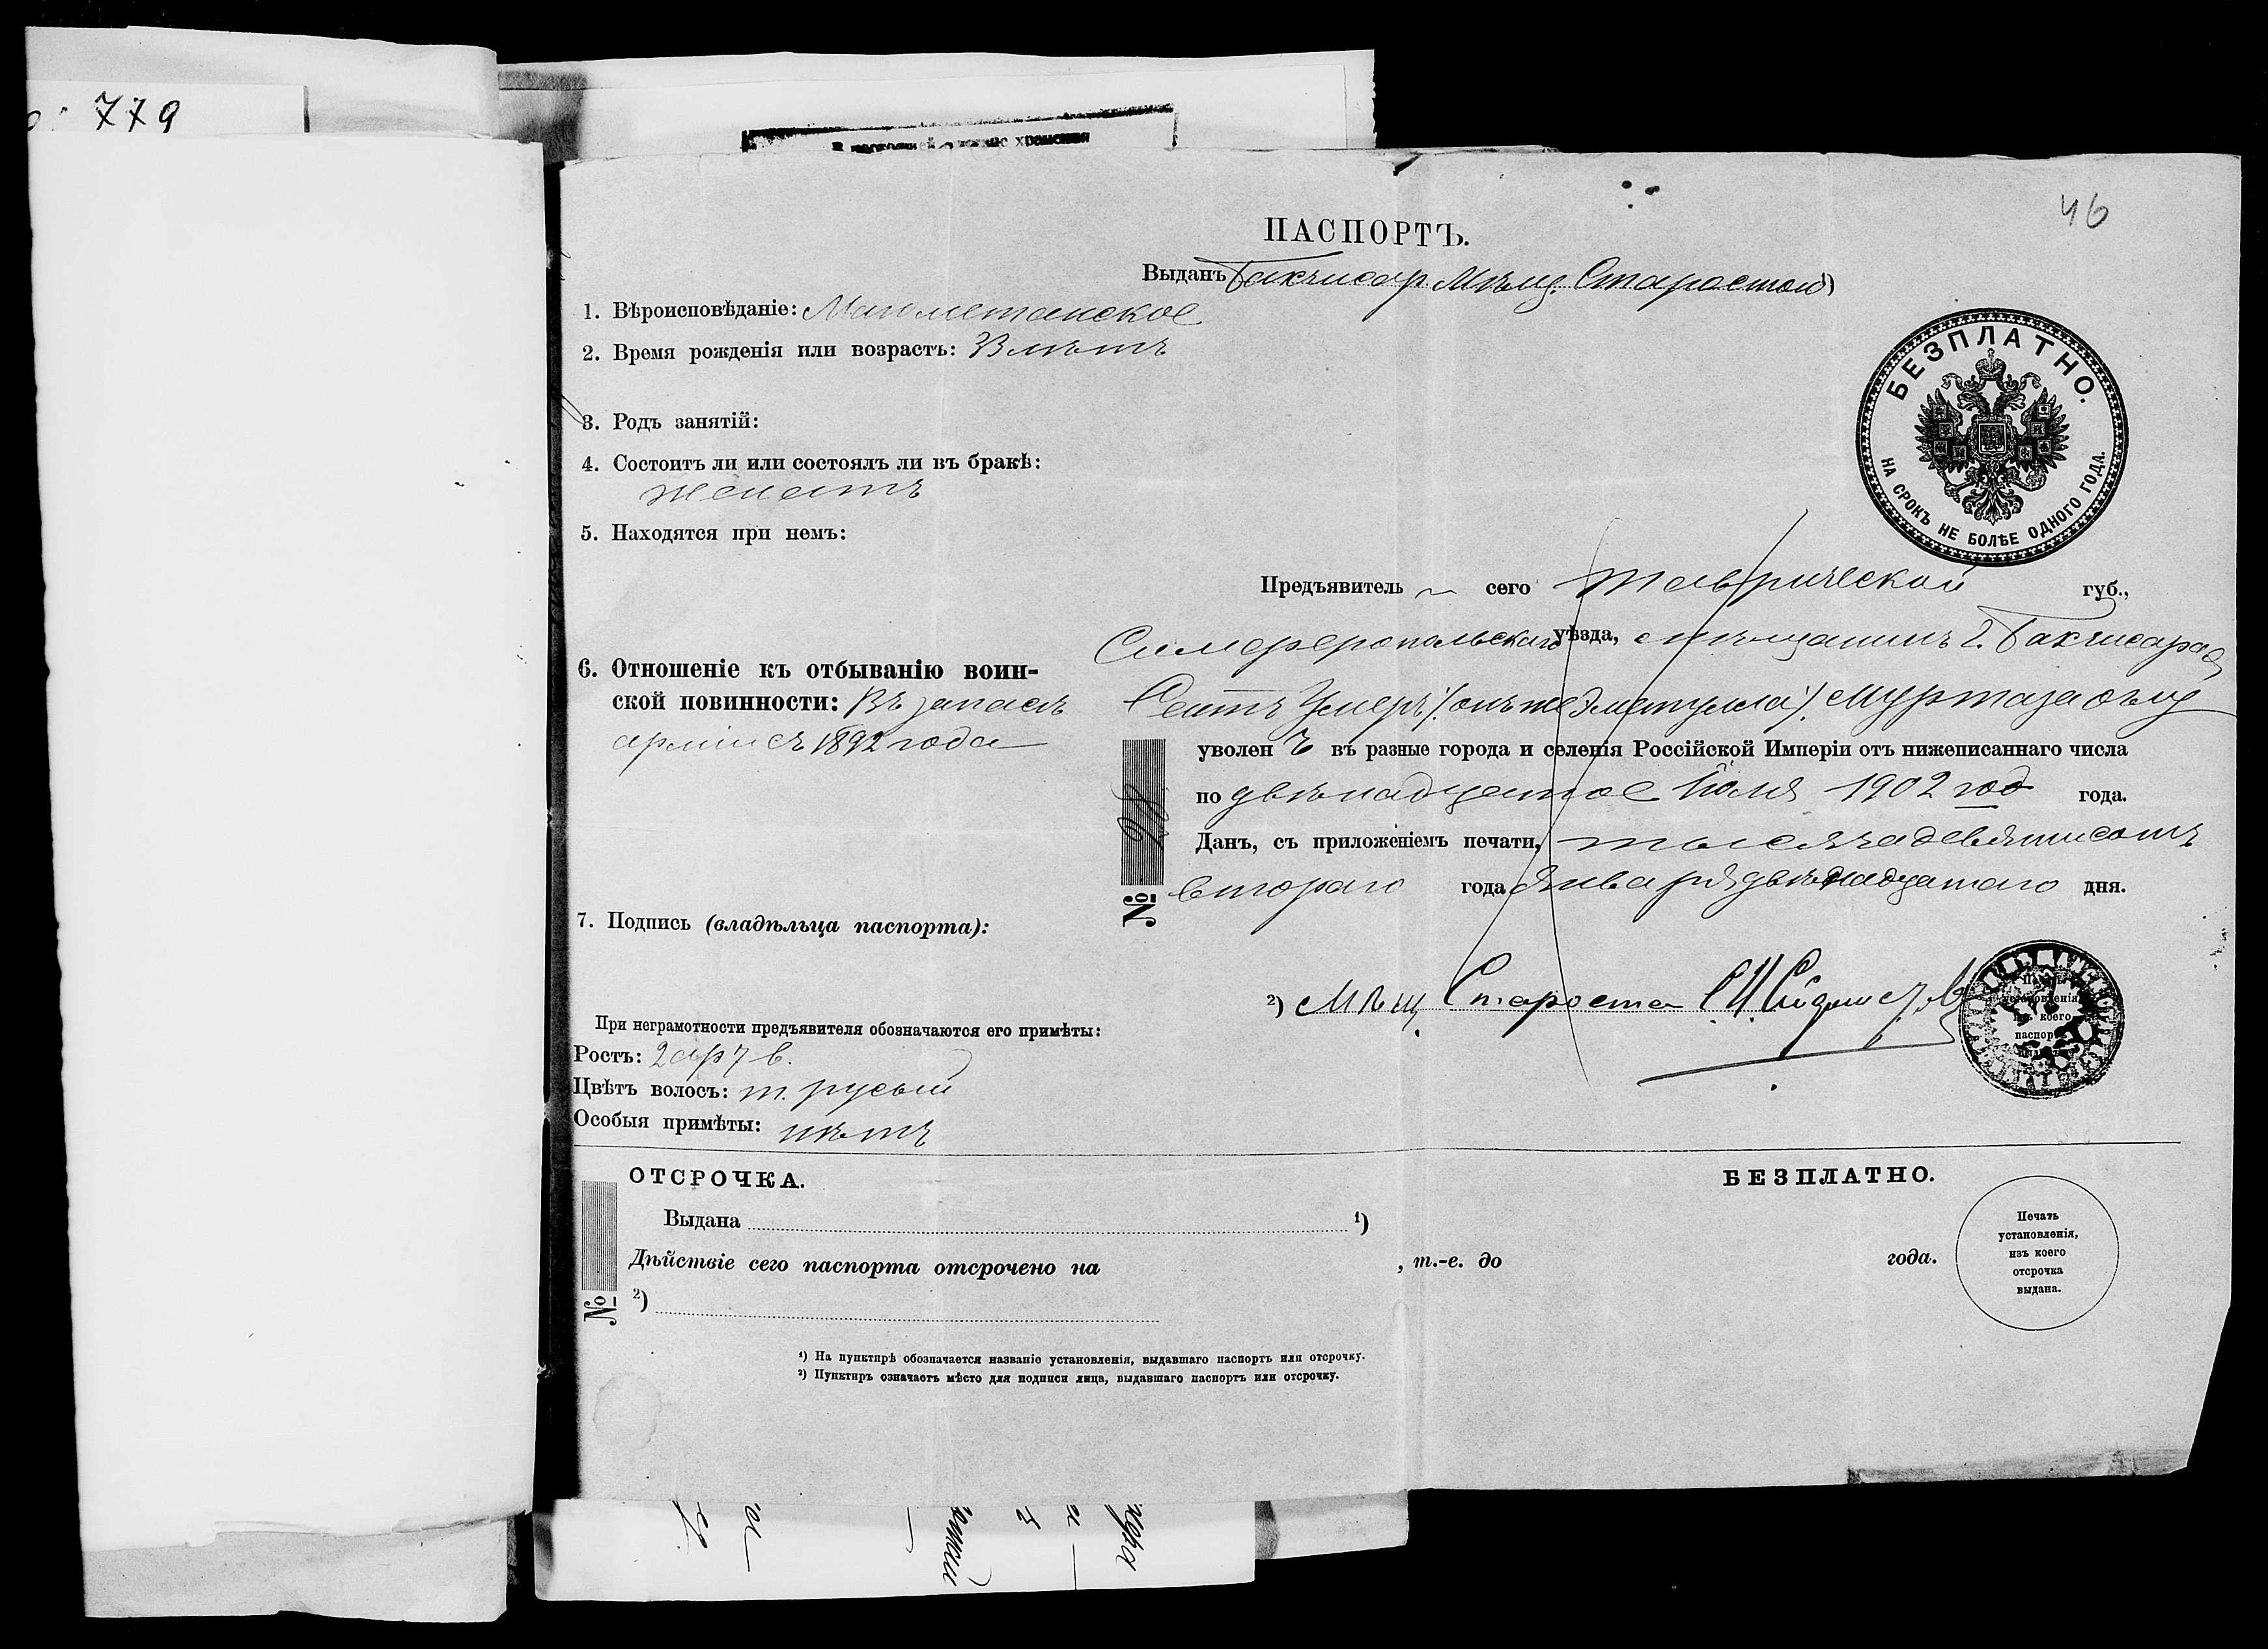 779
46
ПАСПОРТЪ.
Выданъ Бахчисар. Мѣщ. Старостой ¹)
1. Вѣроисповѣданіе: Магометанское
2. Время рожденія или возрастъ: лѣтъ
3. Родъ занятій:
4. Состоитъ ли или состоялъ ли въ бракѣ:
женатъ
5. Находятся при немъ:
6. Отношеніе къ отбыванію воин-
ской повинности: Въ запасѣ
арміи съ 1892 года
7. Подпись (владѣльца паспорта):
При неграмотности предъявителя обозначаются его примѣты:
Ростъ: 2 ар 7 в.
Цвѣтъ волосъ: т. русый
Особыя примѣты: нѣтъ
БЕЗПЛАТНО.
НА СРОКЪ НЕ БОЛѢЕ ОДНОГО ГОДА.
Предъявитель сего Таврической губ.,
Симферопольскаго уѣзда, мѣщанинъ г. Бахчисарая
Сеитъ Умеръ /: онъ же Эметулла /: Муртаза оглу
уволенъ въ разные города и селенія Россійской Имперіи отъ нижеписаннаго числа
по двѣнадцатое Іюля 1902 год года.
Данъ, съ приложеніемъ печати, тысяча девятисотъ
втораго года Января двѣнадцатаго дня.
№
²) Мѣщ. Староста
ОТСРОЧКА.
БЕЗПЛАТНО.
Выдана ¹)
Дѣйствіе сего паспорта отсрочено на , т.-е. до года.
²)
№
Печать
установленія,
изъ коего
отсрочка
выдана.
¹) На пунктирѣ обозначается названіе установленія, выдавшаго паспортъ или отсрочку.
²) Пунктиръ означаетъ мѣсто для подписи лица, выдавшаго паспортъ или отсрочку.